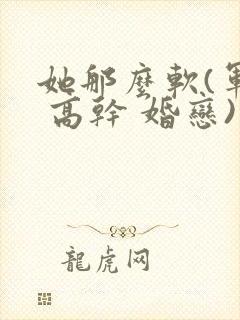 她那麼軟(軍
高幹 婚戀)
龍虎网